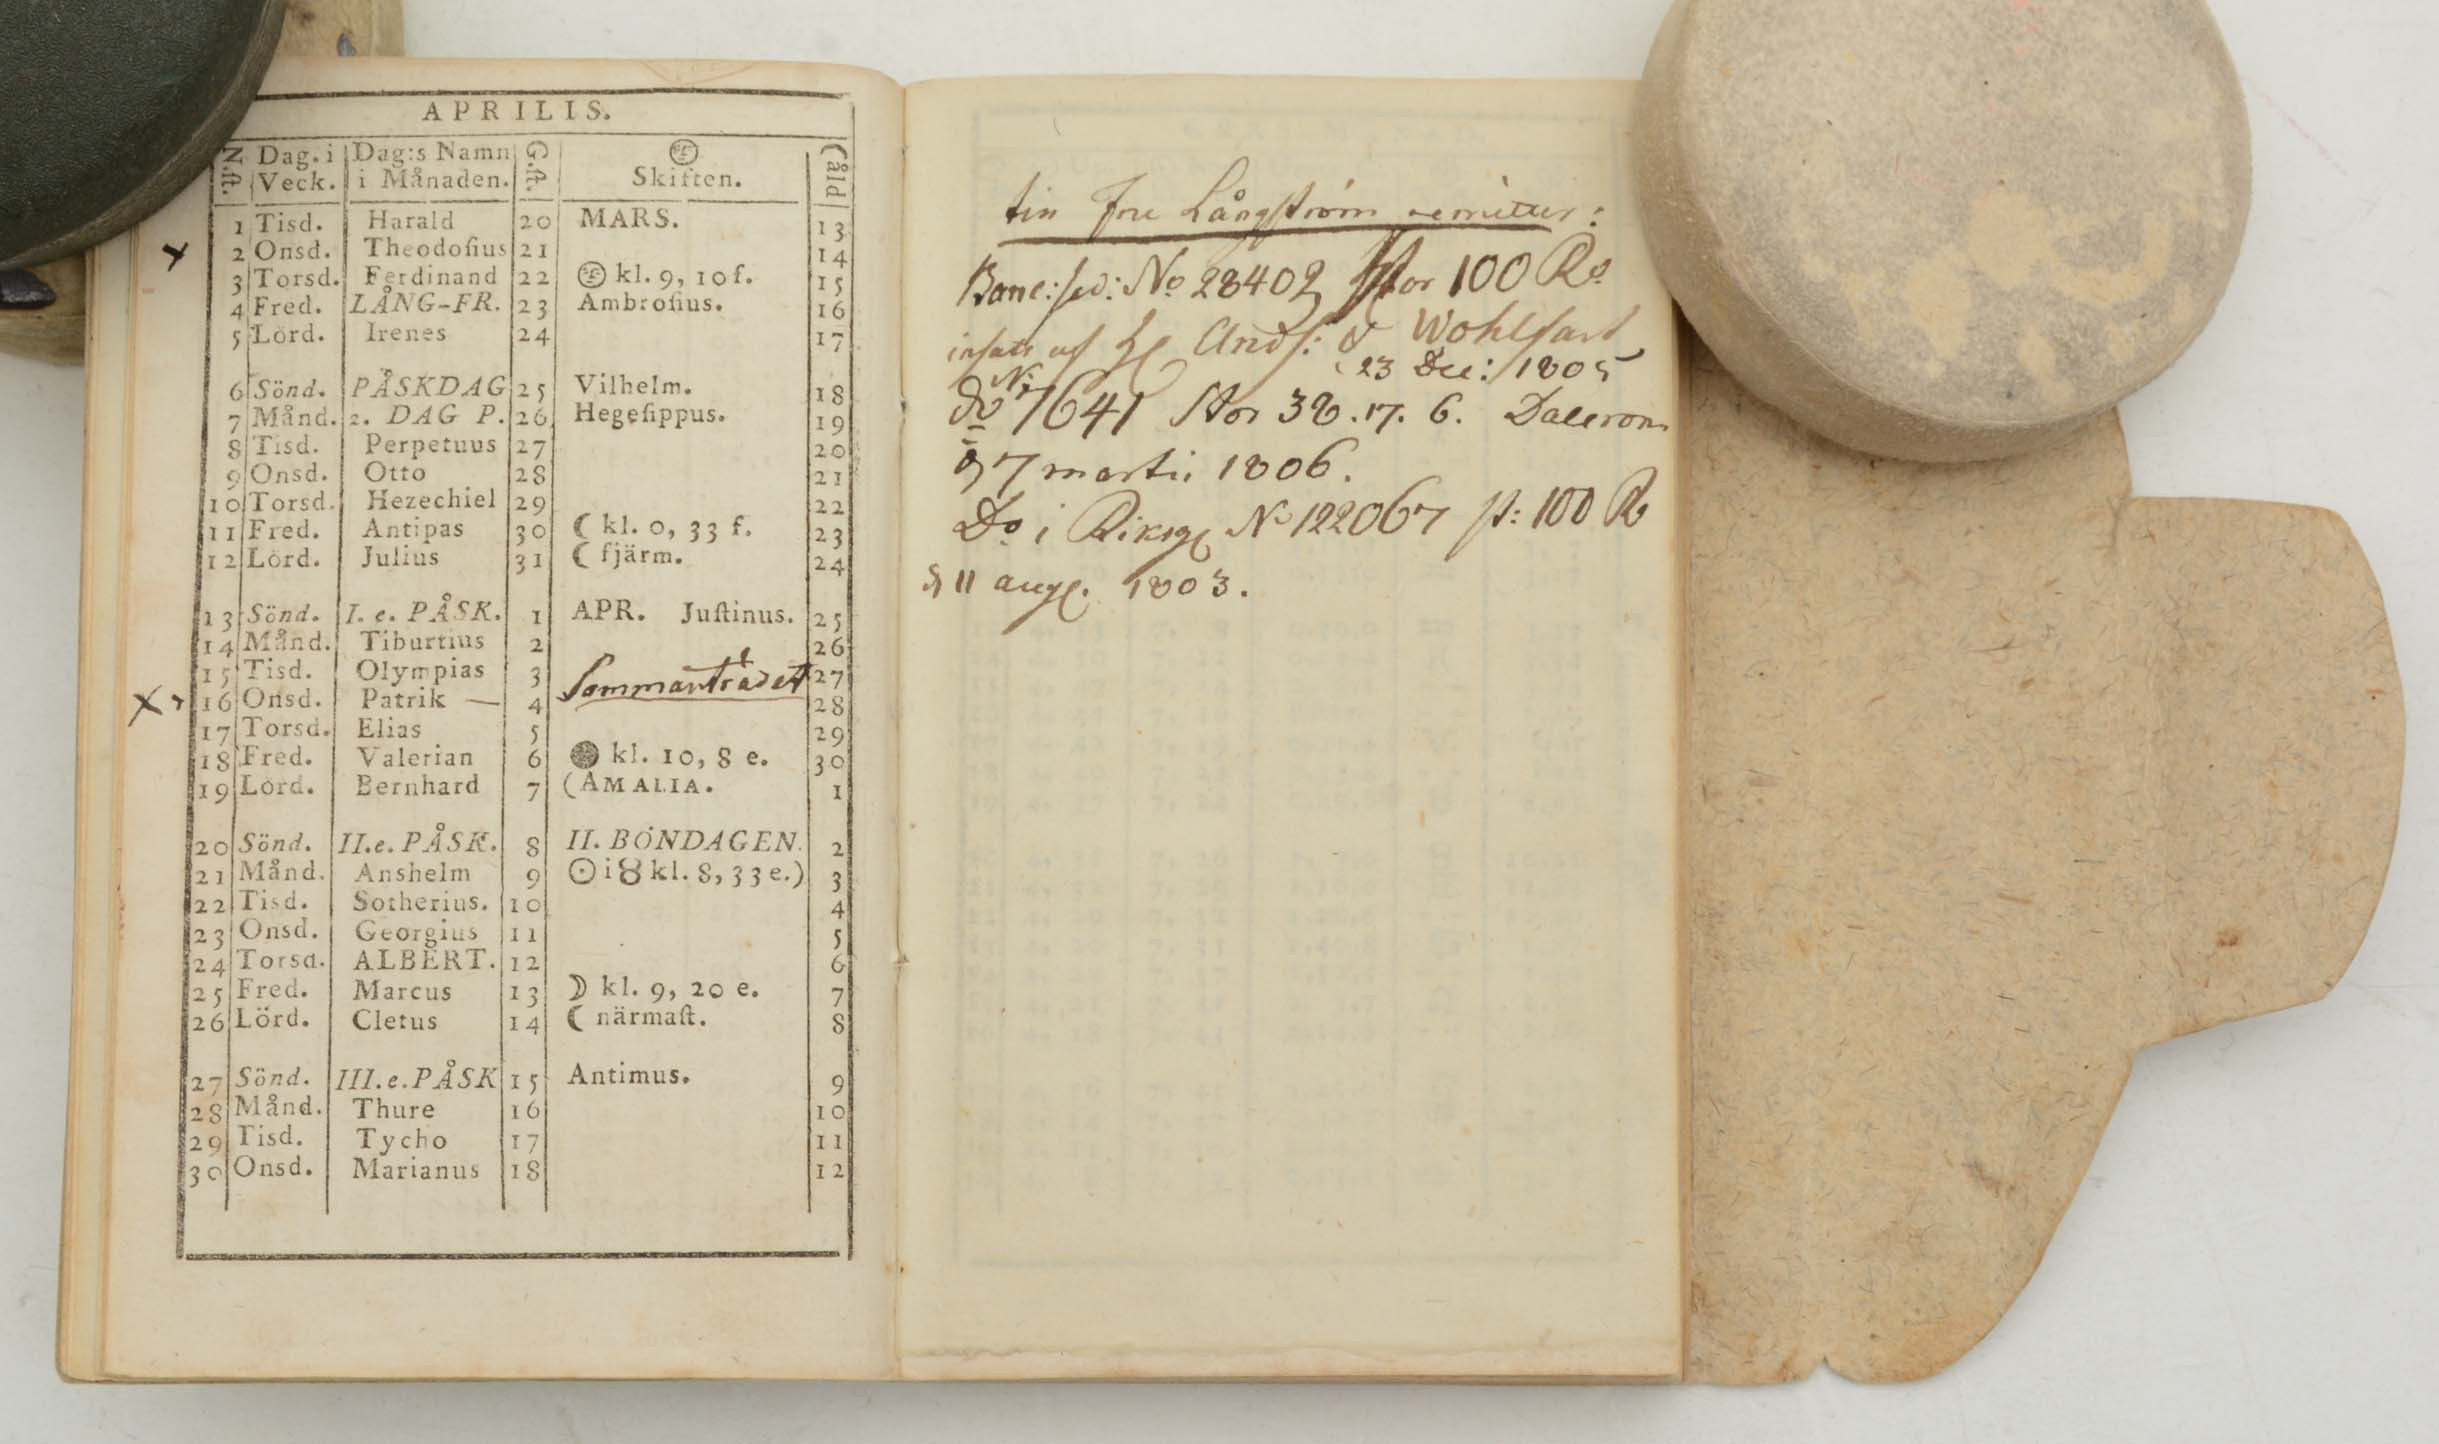 APRILIS.
N.ſt. Dag. i Veck. Dag:s Namn i Månaden. G.ſt. Skiften. (åld
1 Tisd. Harald 20 MARS. 13
2 Onsd. Theodoſius 21 14
3 Torsd. Ferdinand 22 kl. 9, 10 f. 15
4 Fred. LÅNG-FR. 23 Ambroſius. 16
5 Lörd. Irenes 24 17
6 Sönd. PÅSKDAG 25 Vilhelm. 18
7 Månd. 2. DAG P. 26 Hegeſippus. 19
8 Tisd. Perpetuus 27 20
9 Onsd. Otto 28 21
10 Torsd. Hezechiel 29 22
11 Fred. Antipas 30 ☾ kl. 0, 33 f. 23
12 Lörd. Julius 31 ☾ fjärm. 24
13 Sönd. I. e. PÅSK. 1 APR. Juſtinus. 25
14 Månd. Tiburtius 2 26
15 Tisd. Olympias 3 27
16 Onsd. Patrik — 4 Sommanträdet 28
17 Torsd. Elias 5 29
18 Fred. Valerian 6 ● kl. 10, 8 e. 30
19 Lörd. Bernhard 7 (AMALIA. 1
20 Sönd. II.e. PÅSK. 8 II. BÖNDAGEN. 2
21 Månd. Anshelm 9 ☉ i ♉ kl. 8, 33 e.) 3
22 Tisd. Sotherius. 10 4
23 Onsd. Georgius 11 5
24 Torsd. ALBERT. 12 6
25 Fred. Marcus 13 ☽ kl. 9, 20 e. 7
26 Lörd. Cletus 14 ☾ närmaſt. 8
27 Sönd. III.e. PÅSK 15 Antimus. 9
28 Månd. Thure 16 10
29 Tisd. Tycho 17 11
30 Onsd. Marianus 18 12
Långström
Banc: sed: No 28402 stor 100 Rd
Wohlfart
23 Dec: 1805
do No 7641 stor 38. 17. 6.
7 martii 1806.
Do i No 122067 st: 100 R
11 aug. 1803.